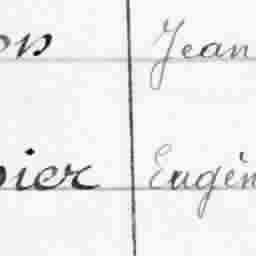 on Jean
pier Eugèn